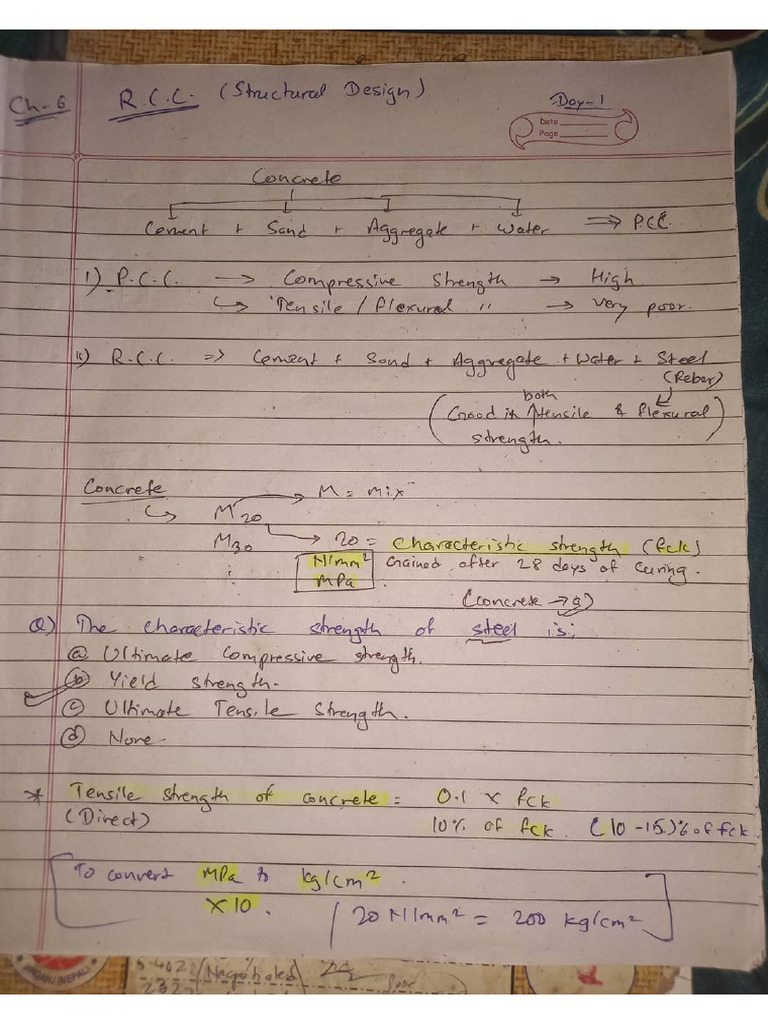 Ch-6 R.C.C. (Structural Design) Day-1
Date
Page
Concrete
Cement + Sand + Aggregate + Water ⇒ P.C.C.
i) P.C.C. → Compressive Strength → High
↳ Tensile / Flexural " → very poor.
ii) R.C.C. ⇒ Cement + Sand + Aggregate + Water + Steel
(Rebar)
both
(Good in ↑ tensile & flexural)
strength.
Concrete
↳ M20 → M = mix
M30 → 20 = Characteristic strength (fck)
N/mm² Gained after 28 days of curing.
MPa
:
(Concrete → a)
Q) The characteristic strength of steel is:
ⓐ Ultimate compressive strength.
ⓑ Yield strength.
ⓒ Ultimate Tensile Strength.
ⓓ None.
* Tensile strength of concrete = 0.1 x fck
(Direct) 10% of fck. (10-15)% of fck
To convert MPa to kg/cm².
x10. / 20 N/mm² = 200 kg/cm²
(Negotiated)